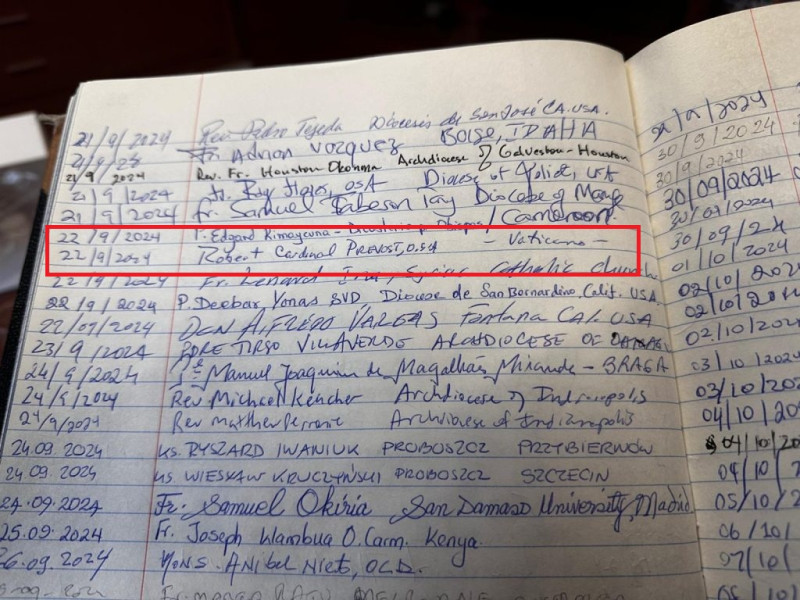 21/9/2024 Rev. Pedro Tejeda Diócesis de San José CA. USA.
21/9/24 Fr. Adrian Vazquez BOISE, IDAHA
21/9/2024 Rev. Fr. Houston Okonma Archdiocese of Galveston-Houston
21/9/2024 Fr. Ray Flores, OSA Diocese of Joliet, USA
21/9/2024 fr. Samuel Tabeson Tay Diocese of
22/9/2024 P. Edgard Rimaycuna - / Cameroon.
22/9/2024 Robert Cardinal PREVOST, O.S.A - Vaticano -
22/9/2024 Fr. Syriac Catholic church
22/9/2024 P. Deebar Yonas SVD, Diocese de San Bernardino, Calif. USA.
22/09/2024 DON ALFREDO VARGAS Fontana CAL USA
23/9/2024 PDRE TIRSO VILLAVERDE ARCHDIOCESE OF
24/9/2024 Manuel Joaquim de Magalhães Mirande - BRAGA
24/9/2024 Rev Michael Keucher Archdiocese of Indianapolis
24/9/2024 Rev Matthew Perronie Archdiocese of Indianapolis
24.09.2024 KS. RYSZARD IWANIUK PROBOSZCZ PRZYBIERNÓW
24.09.2024 KS WIESŁAW KRUCZYŃSKI PROBOSZCZ SZCZECIN
24.09.2024 Fr. Samuel Okiria San Damaso University, Madrid
25.09.2024 Fr. Joseph Wambua O.Carm. Kenya.
26.09.2024 MONS. ANIBAL NIETO, OCD.
30/9/2024
30/9/2024
30/09/2024
30/09/2024
30/09/24
01/10/2024
02/10/202
02/10/20
02/10/20
03/10/2024
03/10/20
04/10/20
04/10/20
04/10/
05/10/2
06/10/
07/10/